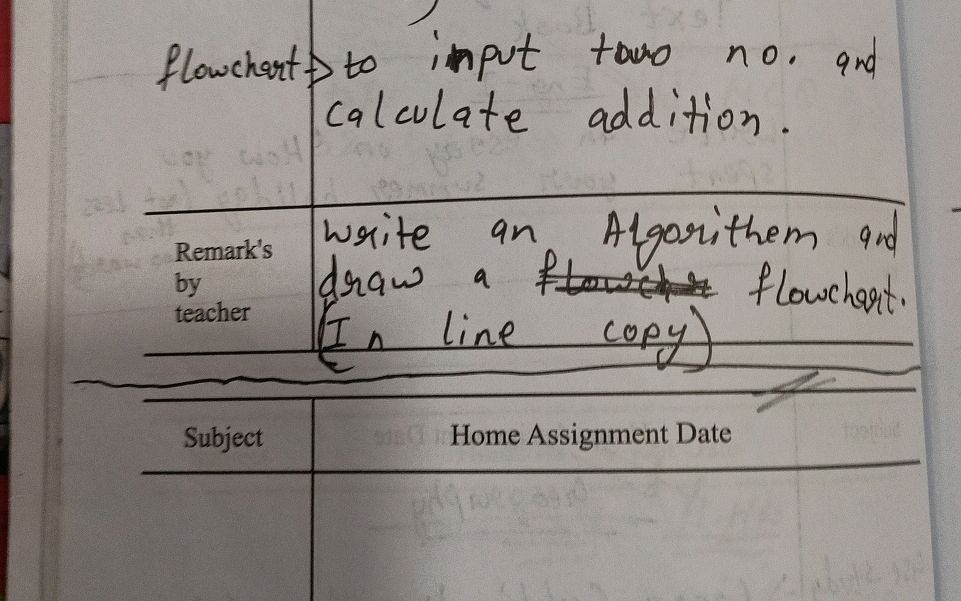 flowchart → to input two no. and
calculate addition.
Remark's
by
teacher
write an Algorithem and
draw a flowchart.
(In line copy)
Subject
Home Assignment Date